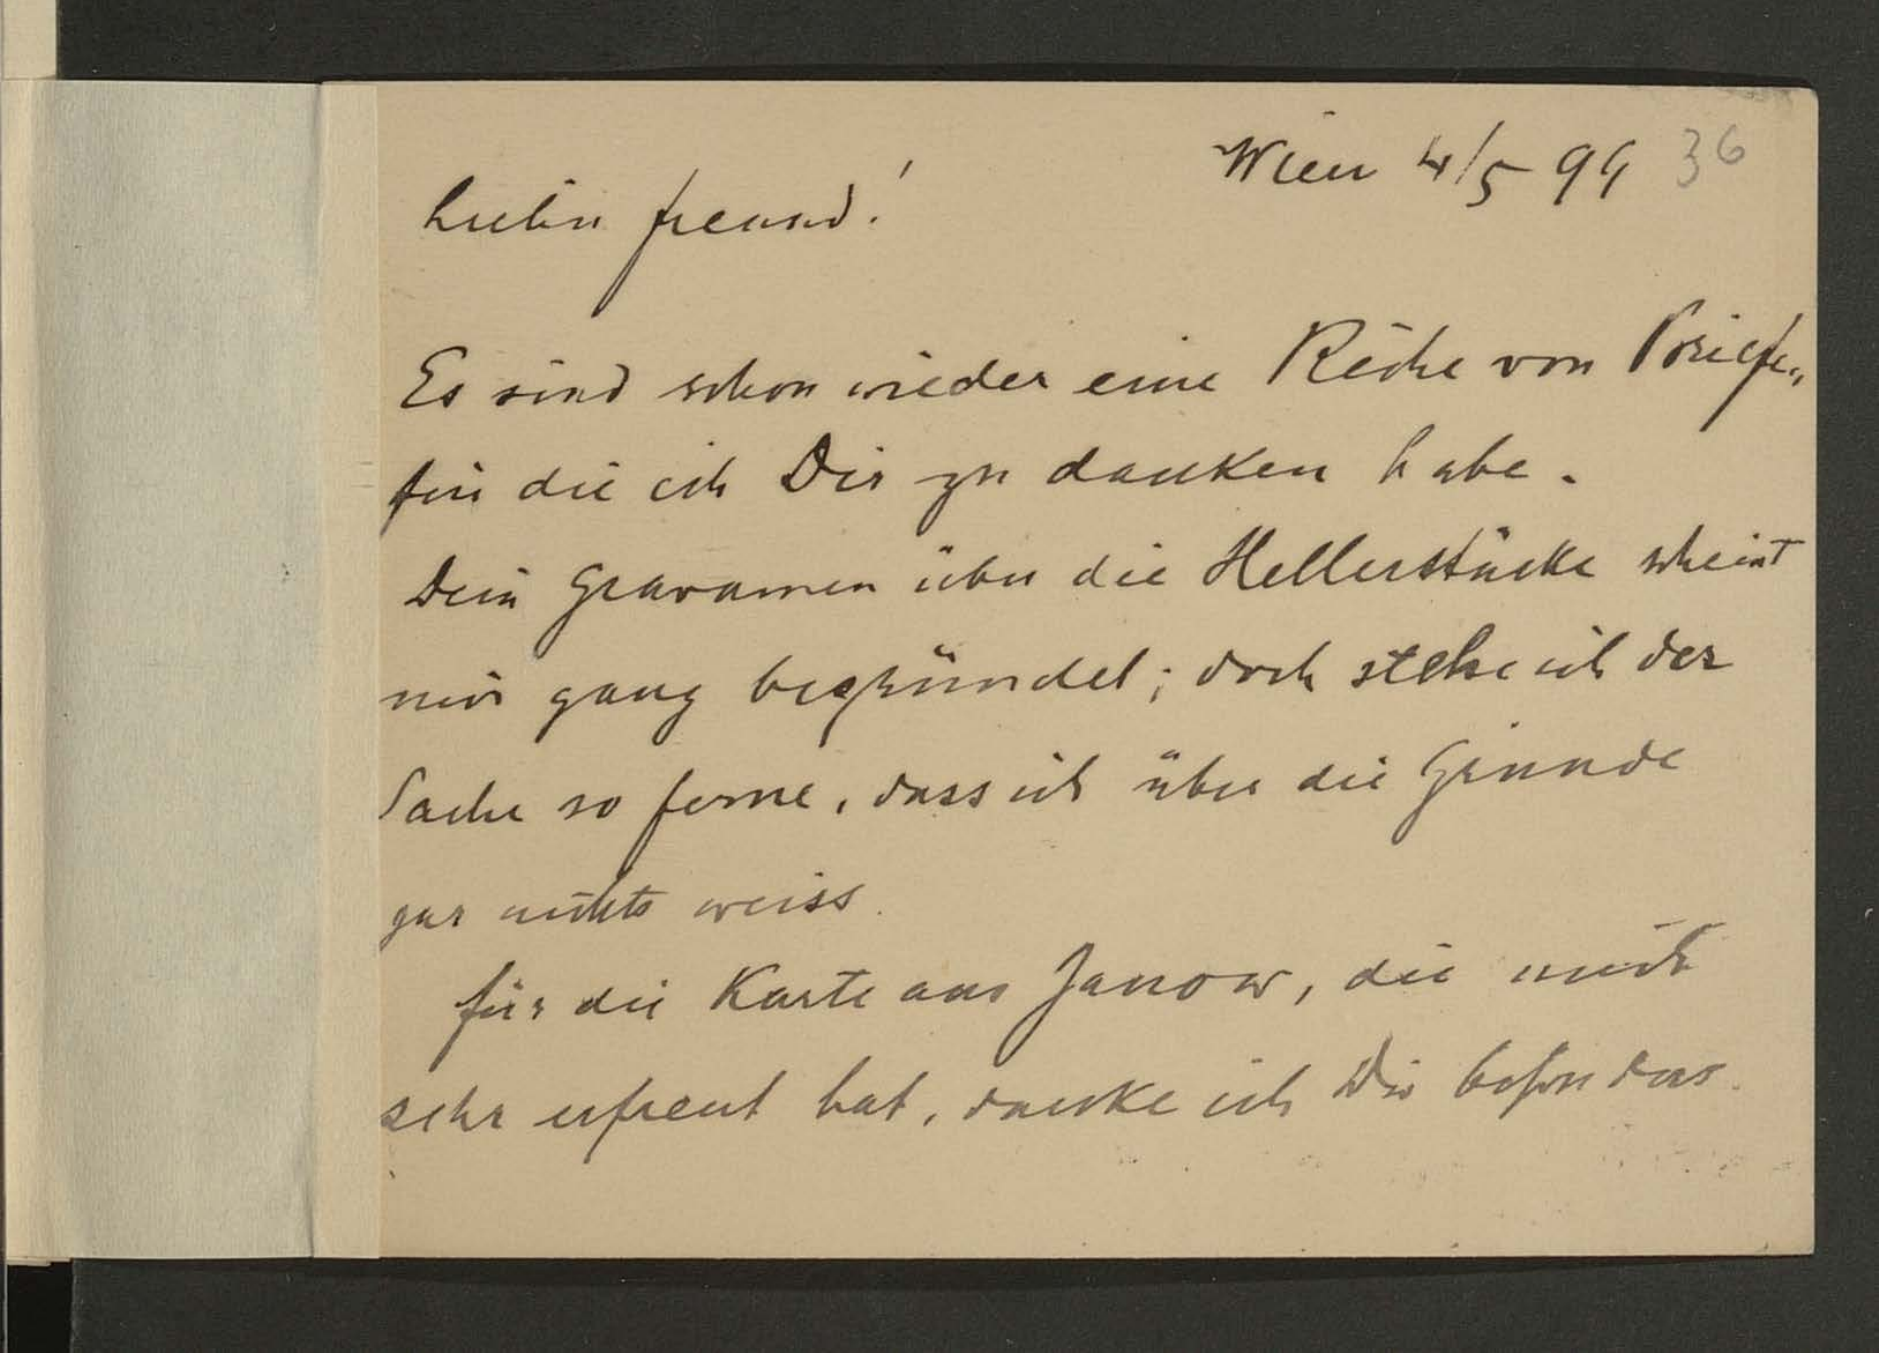 Wien 4/5 94 36
Lieber Freund!
Es sind schon wieder eine Reihe von Briefen,
für die ich Dir zu danken habe.
Dein Gravamen über die Hellerstücke scheint
mir ganz begründet; doch stehe ich der
Sache so ferne, dass ich über die Gründe
gar nichts weiss.
Für die Karte aus Janow, die mich
sehr erfreut hat, danke ich Dir besonders.